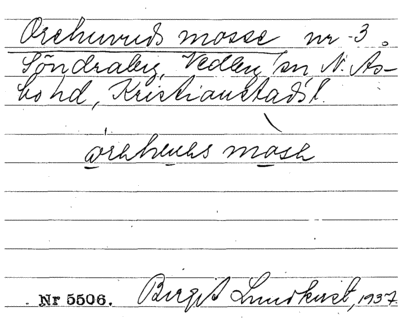 Orehuvuds mosse nr 3.
Söndraby, Vedby sn, N. Ås-
bo hd, Kristianstads l.
mosa
Nr 5506. Birgit Lundkvist, 1937